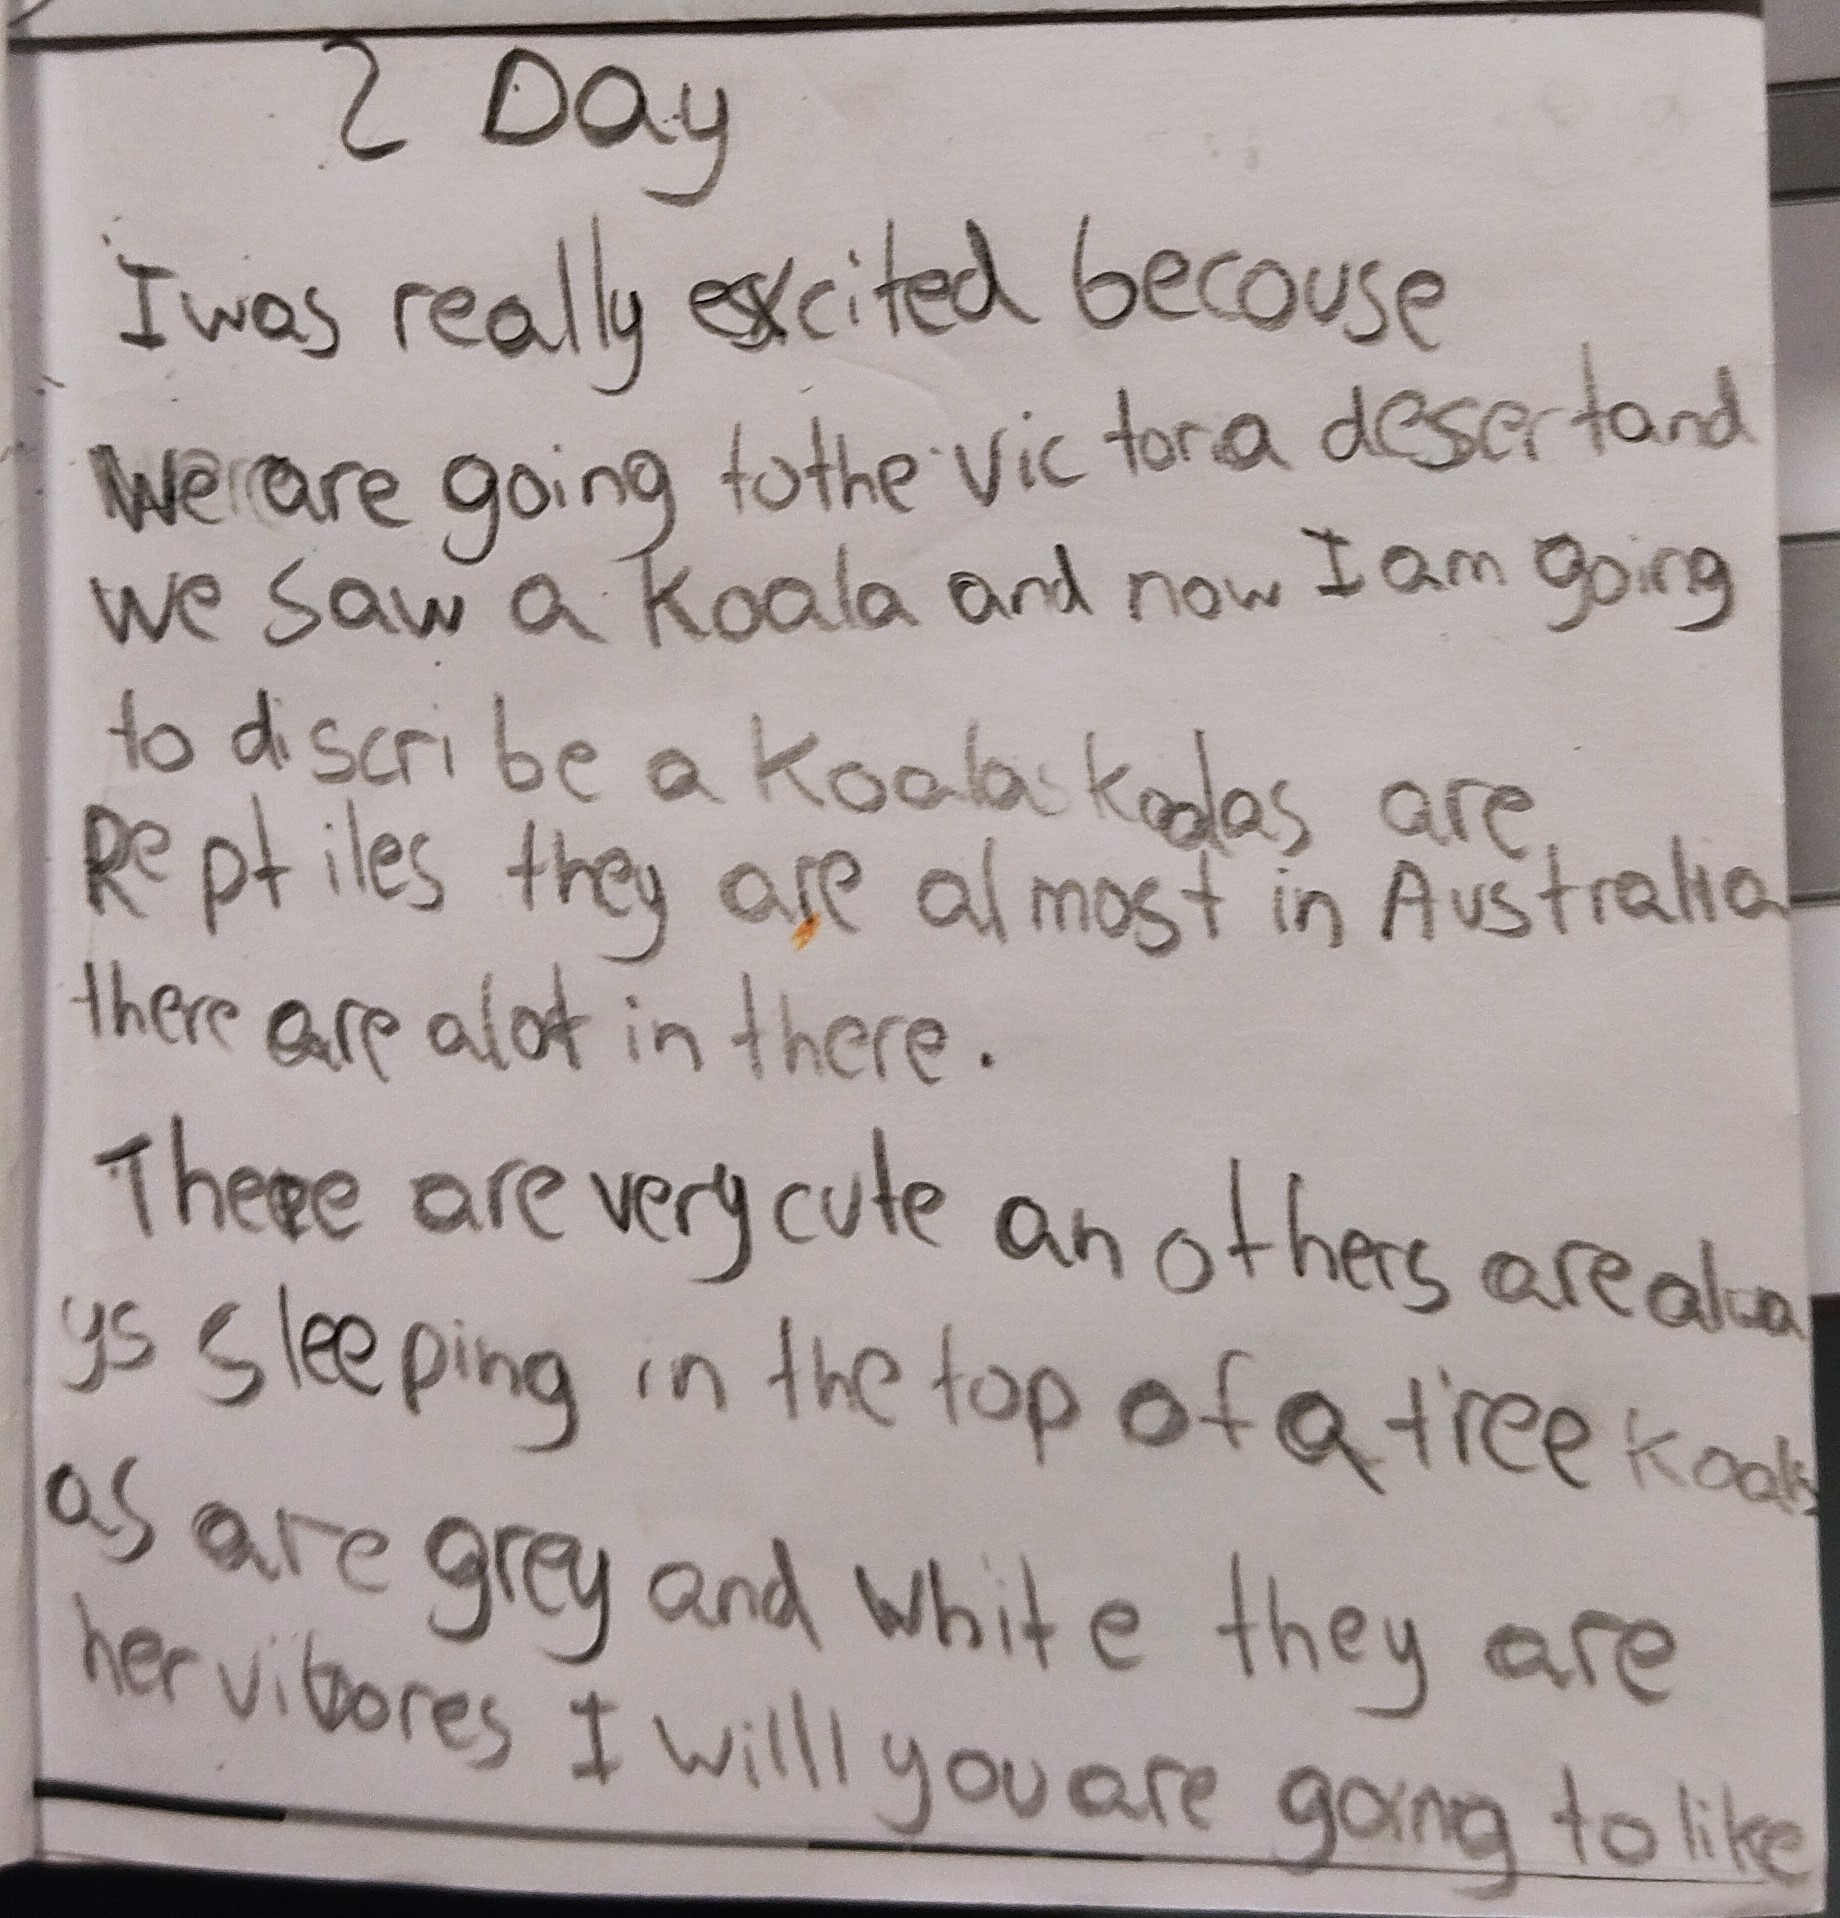 2 Day
I was really excited becouse
We are going to the victoria desert and
we saw a koala and now I am going
to discribe a Koala koalas are
Reptiles they are almost in Australia
there are alot in there.
There are very cute an others are alwa
ys sleeping in the top of a tree koal
as are grey and white they are
hervibores I willl you are going to like